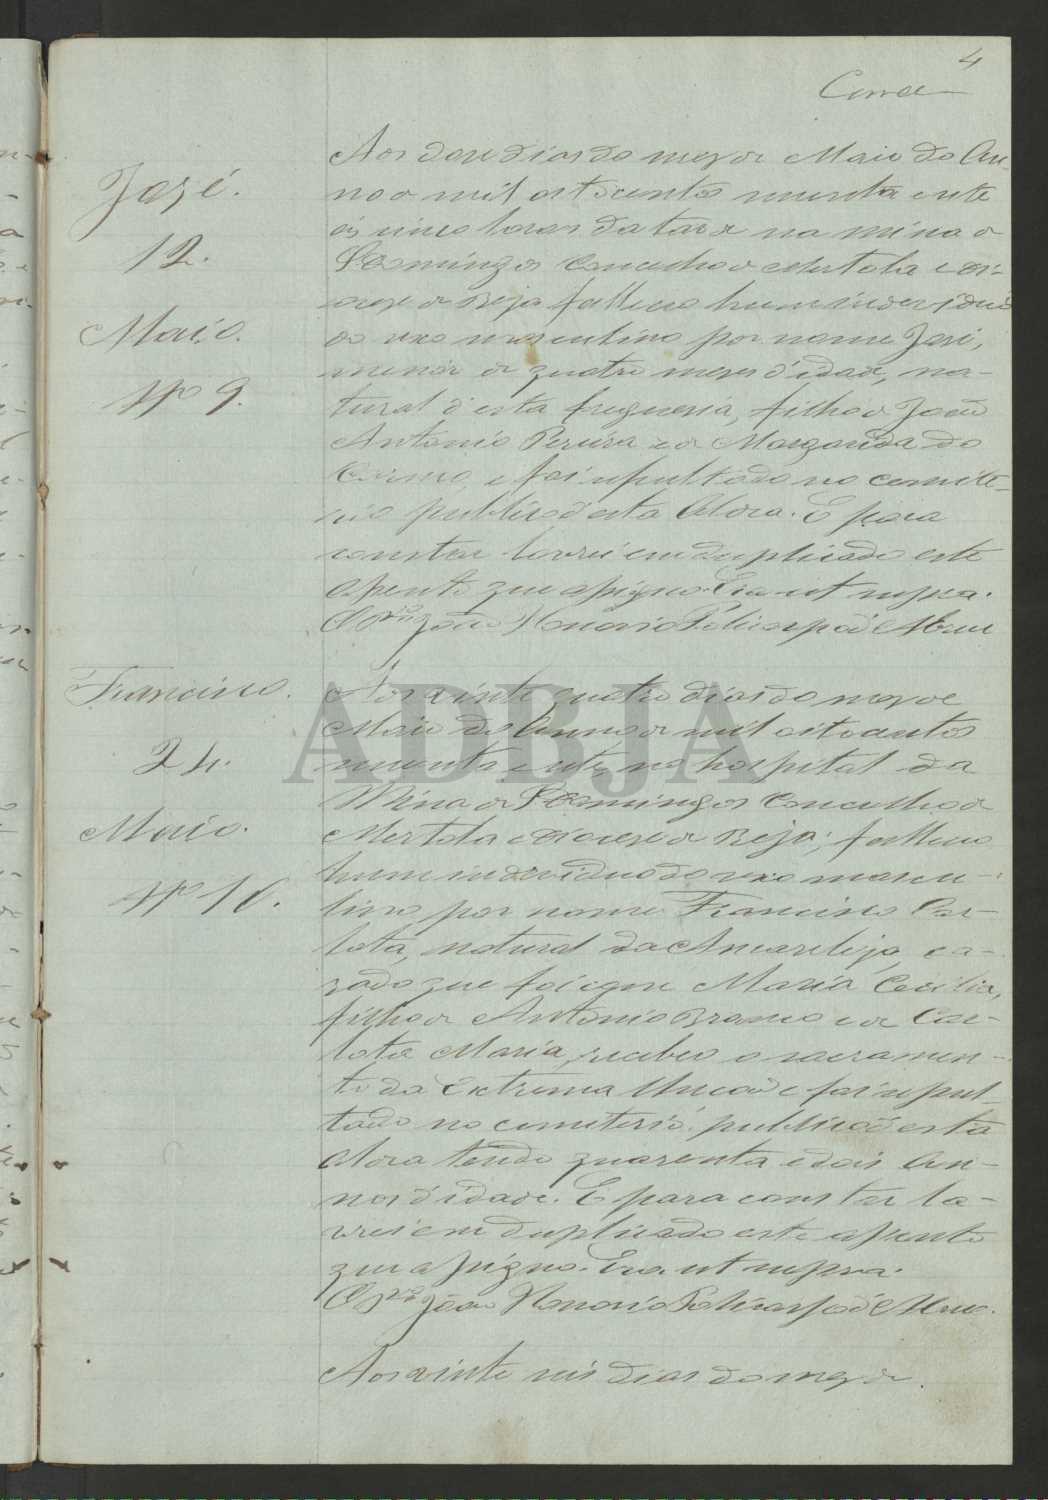 4
José.
12.
Maio.
Nº 9.
Aos doze dias do mez de Maio do An-
no de mil oitocentos noventa e sete
ás cinco horas da tarde na mina de
S Domingos Concelho de Mertola e Di-
ocese de Beja falleceo hum individuo
do sexo masculino por nome José,
menor de quatro mezes d'idade, na-
tural d'esta freguesia, filho de João
Antonio Pereira e de Margarida do
Carmo, e foi sepultado no cemite-
rio publico d'esta Aldeia. E para
constar lavrei em duplicado este
assento que assigno. Era ut supra.
O Pr.º João Honorio Policarpo d'Abreu
Francisco.
24.
Maio.
Nº 10.
Aos vinte quatro dias do mez de
Maio do Anno de mil oitocentos
noventa e sete, no hospital da
Mina de S Domingos Concelho de
Mertola e diocese de Beja; falleceo
hum individuo do sexo mascu-
lino por nome Francisco Car-
lota, natural da Amareleja, ca-
zado que foi com Maria Cecilia,
filho de Antonio Branco e de Car-
lota Maria, recebeo o sacramen-
to da Extrema Uncão e foi sepul-
tado no cemiterio publico d'esta
Aldeia tendo quarenta e dois An-
nos d'idade. E para constar la-
vrei em duplicado este assento
que assigno. Era ut supra.
O Pr.º João Honorio Policarpo d'Abreu.
Aos vinte seis dias do mez de
ADBJA